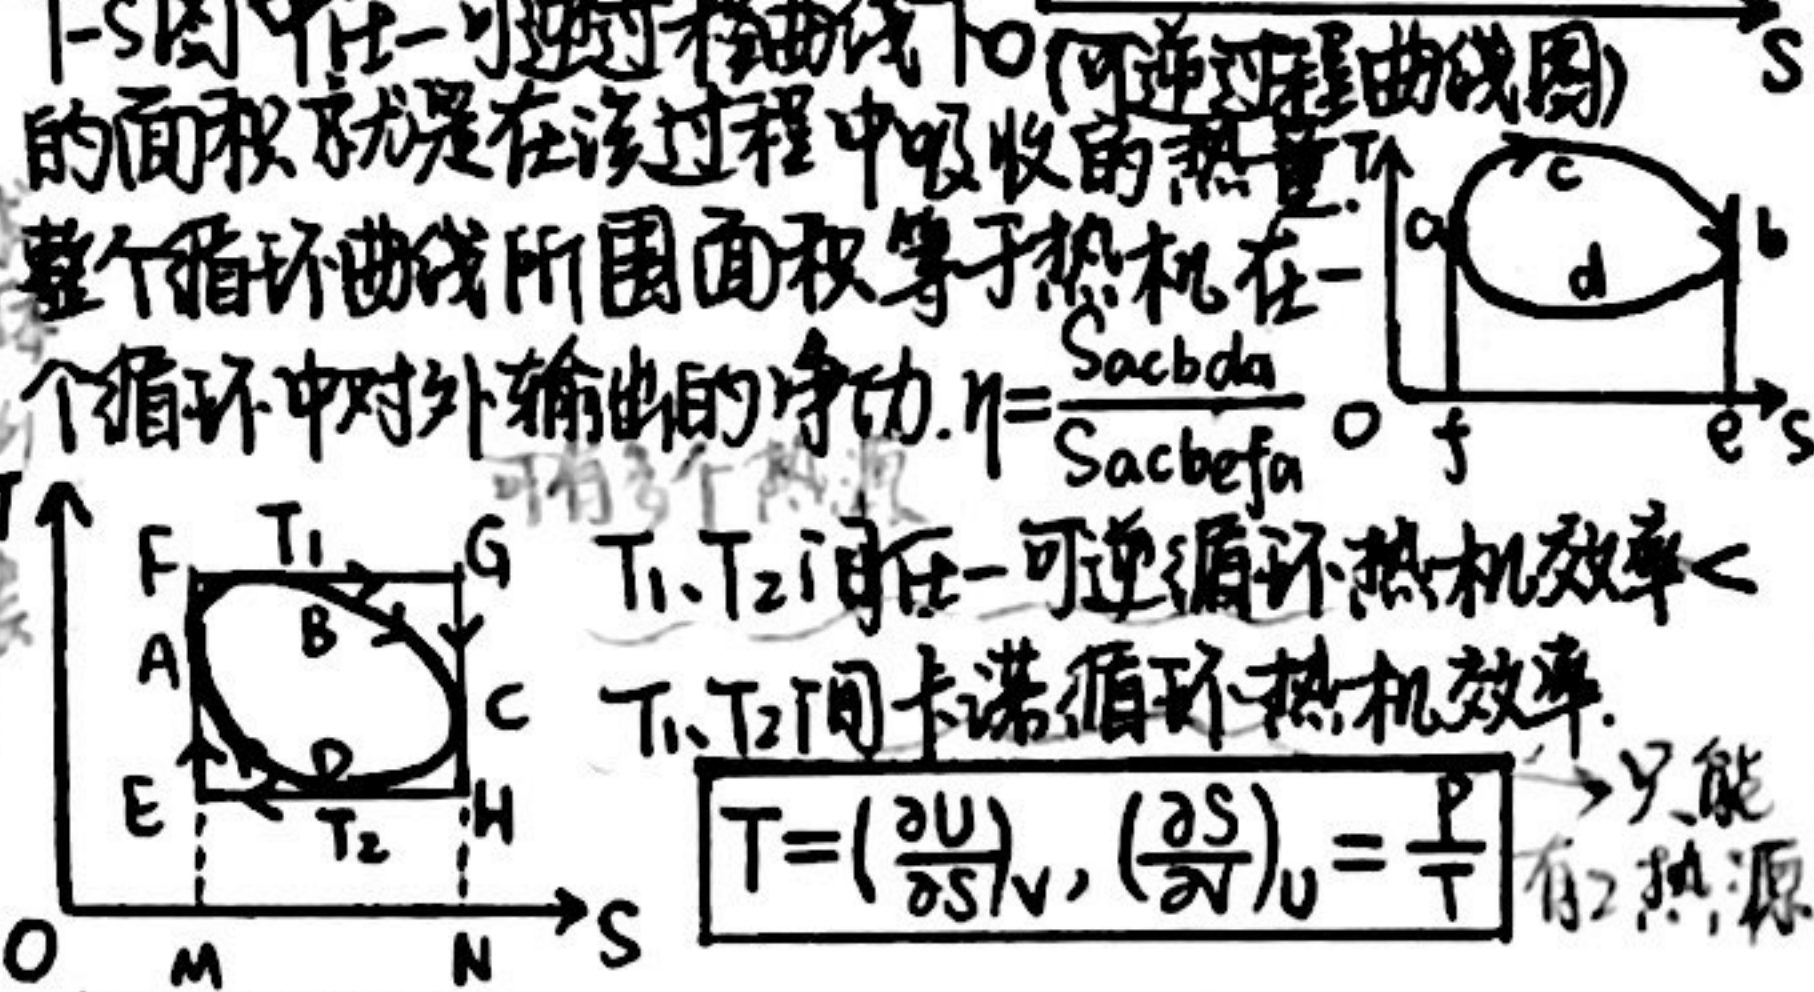 T-S图中任一可逆过程曲线下
(可逆过程曲线图)
S
的面积就是在该过程中吸收的热量.
整个循环曲线所围面积等于热机在一
个循环中对外输出的净功. η=Sacbda/Sacbefa
T a c b d O f e S
可有多个热源
T F T₁ G
A B C
E D H
T₂
O M N S
T₁、T₂间任一可逆循环热机效率<
T₁、T₂间卡诺循环热机效率.
→只能
有2热源
T=(∂U/∂S)ᵥ, (∂S/∂V)ᵤ=P/T